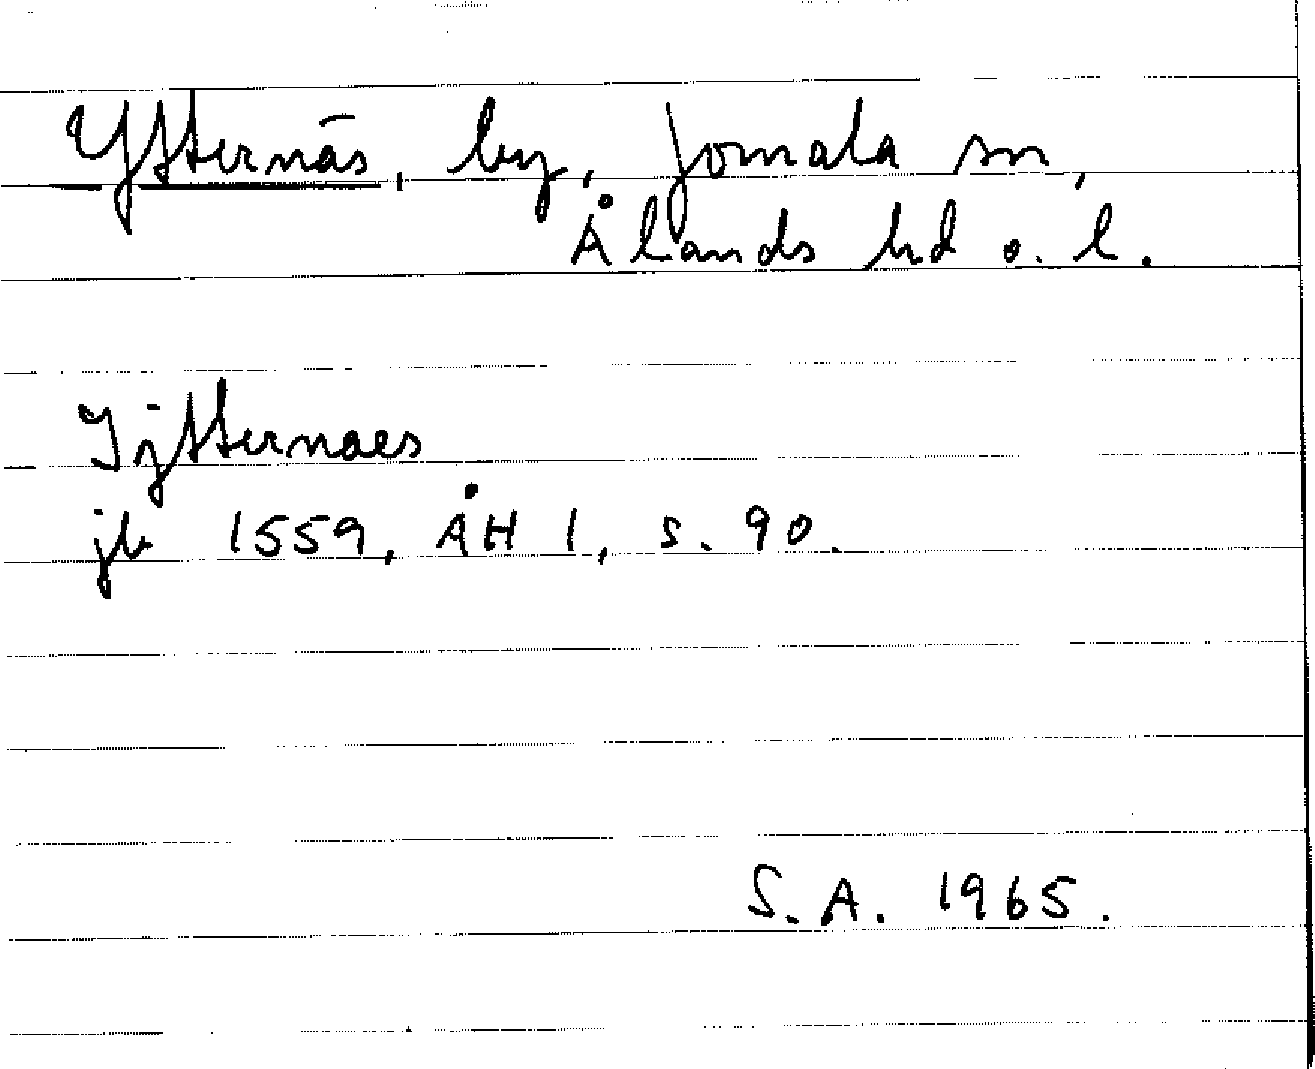 Ytternäs, by, Jomala sn,
Ålands hd o. l.
Ijtternaes
jb 1559, ÅH 1, s. 90.
S. A. 1965.